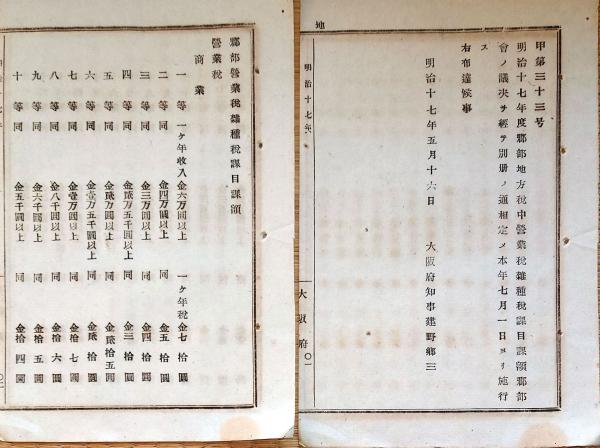 甲第三十三号
明治十七年度郡部地方税中営業税雑種税課目課額郡部
会ノ議决ヲ経テ別册ノ通相定メ本年七月一日ヨリ施行
ス
右布達候事
明治十七年五月十六日　大阪府知事建野郷三
明治十七年
大阪府
郡部営業税雑種税課目課額
営業税
商業
一等　一ケ年収入　金六万圓以上　一ケ年税　金七拾圓
二等　同　金四万圓以上　同　金五拾圓
三等　同　金三万圓以上　同　金四拾圓
四等　同　金貳万五千圓以上　同　金三拾圓
五等　同　金貳万圓以上　同　金貳拾五圓
六等　同　金壹万五千圓以上　同　金貳拾圓
七等　同　金壹万圓以上　同　金拾七圓
八等　同　金八千圓以上　同　金拾六圓
九等　同　金六千圓以上　同　金拾五圓
十等　同　金五千圓以上　同　金拾四圓